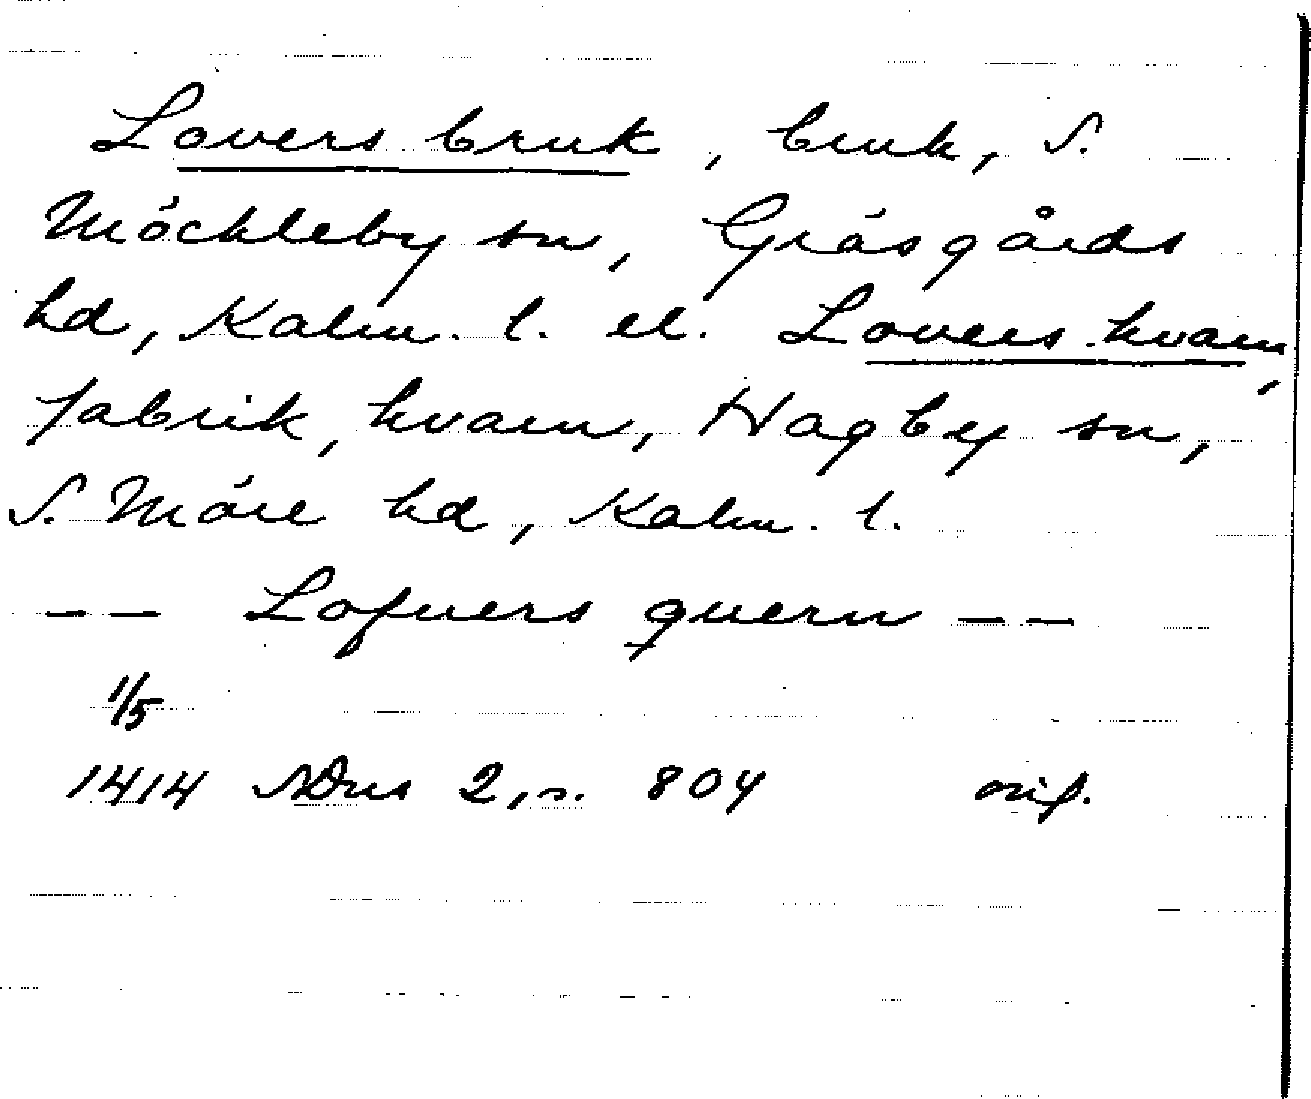 Lovers bruk, bruk, S.
Möckleby sn, Gräsgårds
hd, Kalm. l. el. Lovers kvarn,
fabrik, kvarn, Hagby sn,
S. Möre hd, Kalm. l.
-- Lofuers quern --
1/5
1414 SDns 2, s. 804 orig.